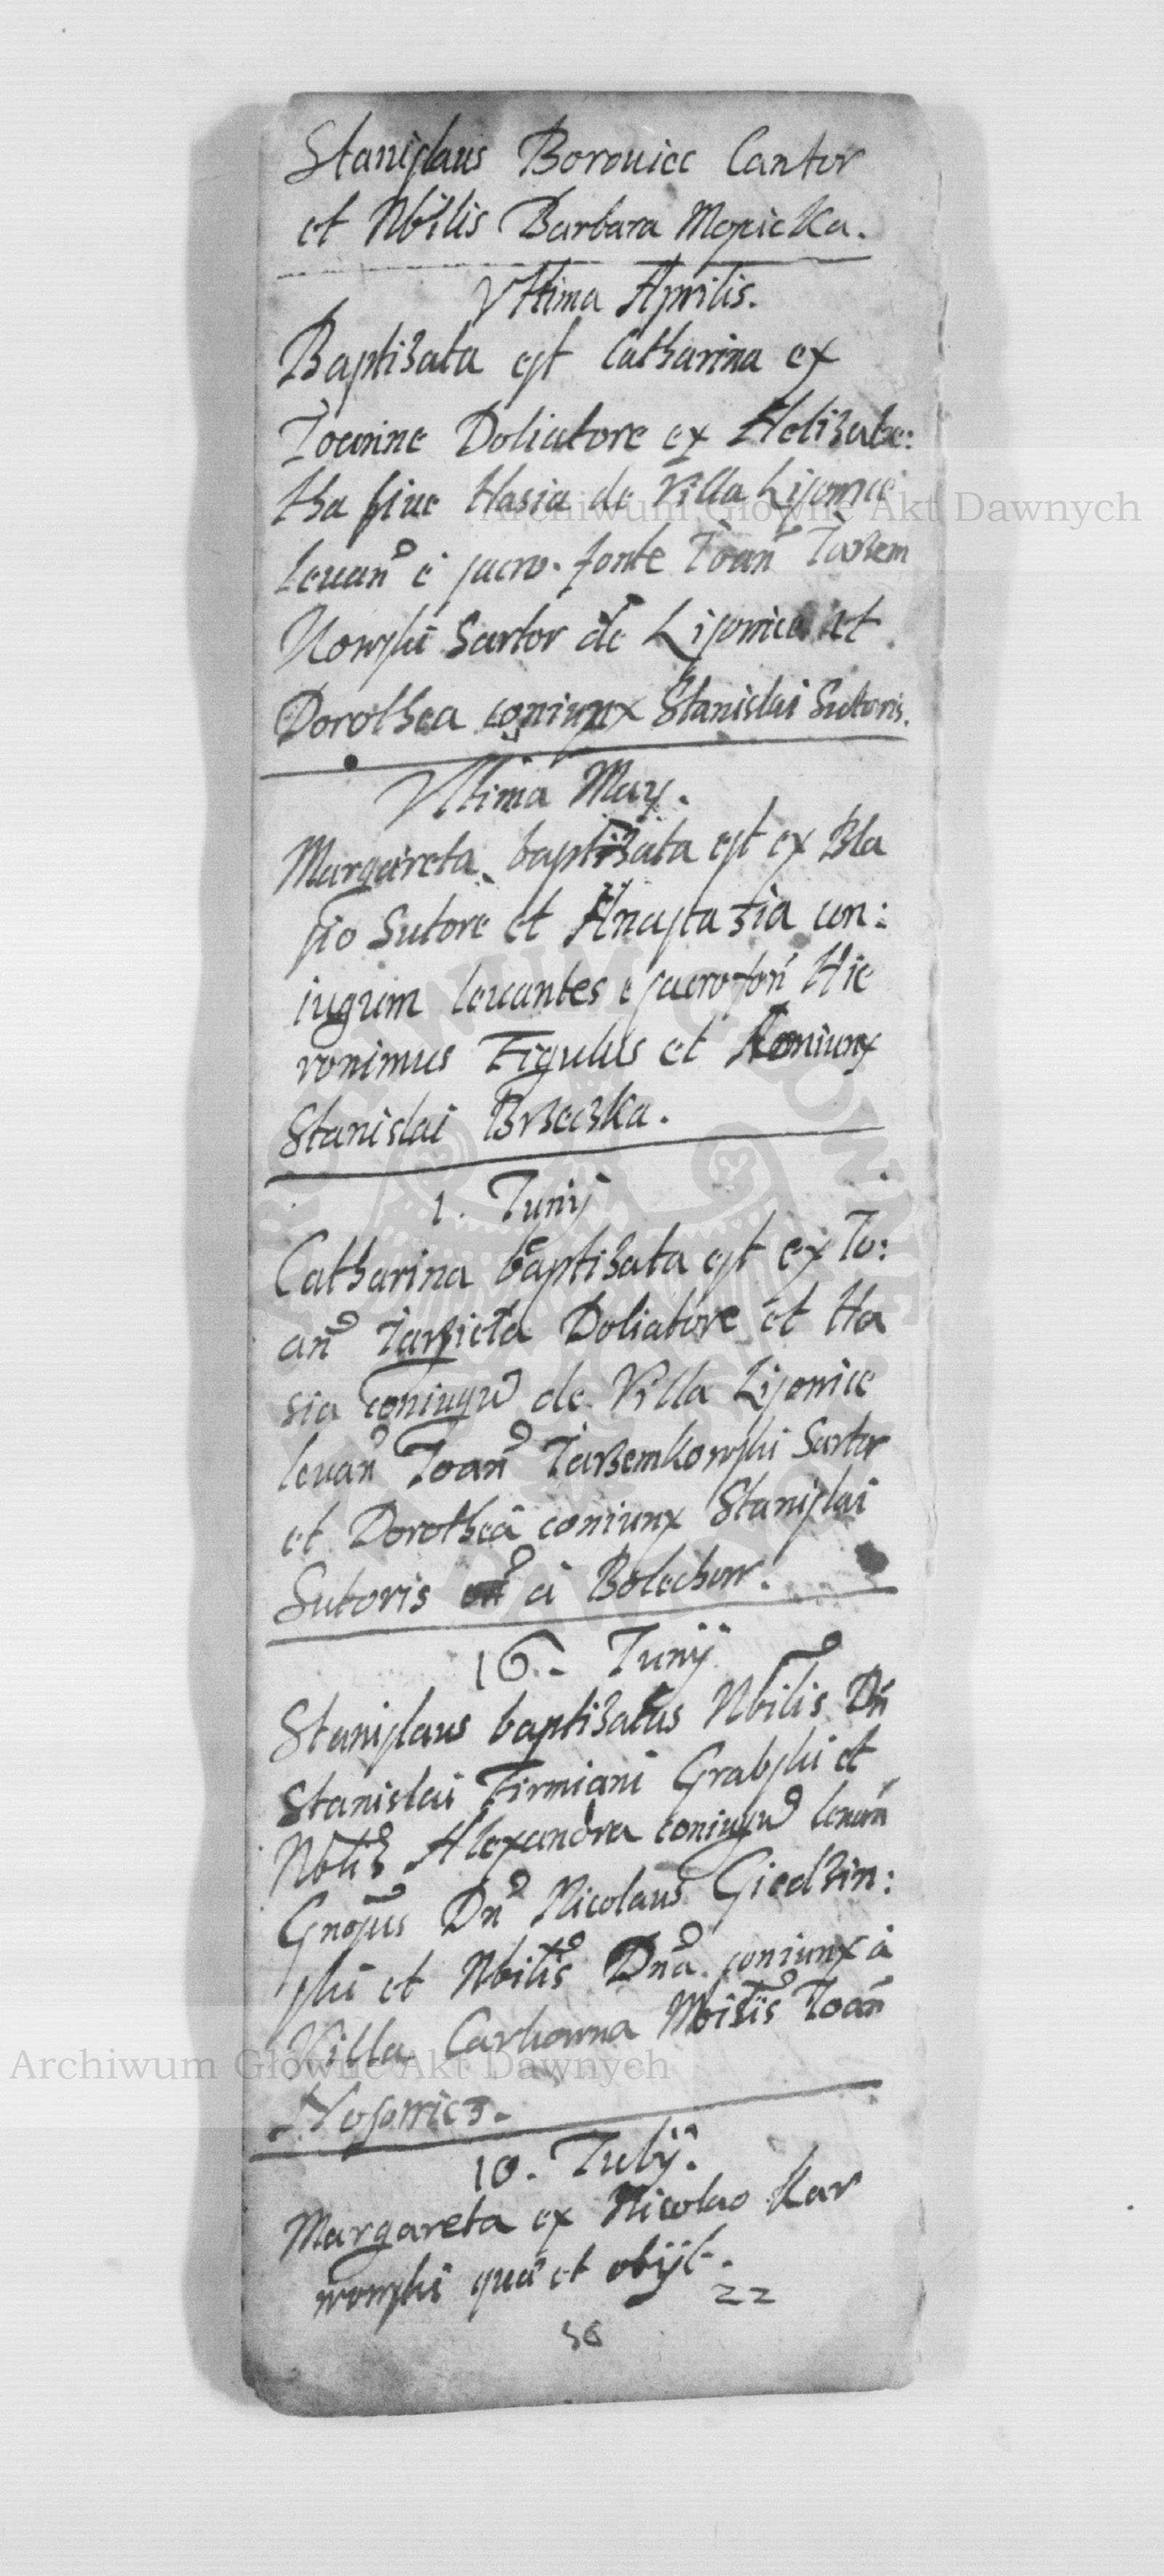 Stanislaus Borouiec Cantor
et Nbilis Barbara Mopicka.
Vltima Aprilis.
Baptizata est Catharina ex
Joanne Doliatore ex Helizabe:
tha siue Hasia de Villa Lisowice
leuan e sacro fonte Joan Jarzem
Nowski Sartor de Lisowice et
Dorothea coniunx Stanislai Sutoris.
Vltima May.
Margareta baptizata est ex Bla
sio Sutore et Anastazia con:
iugum leuantes e sacro fon Hie
ronimus Figulus et Koniunx
Stanislai Brzeczka.
1. Junij
Catharina baptizata est ex Jo:
an Doliatore et Ha
sia coniugu de Villa Lisowice
leuan Joan Jarzemkowski Sartor
et Dorothea coniunx Stanislai
Sutoris a Bolechow.
16. Junij
Stanislaus baptizatus Nbilis Dn
Stanislai Firmiani Grabski et
Nbilis Alexandra coniugu leuan
Gnosus Dn Nicolaus Giedzin:
ski et Nbilis Dna coniunx a
Villa Carhowna Nbilis Joan
10. Julij.
Margareta ex Nicolao Kar
wowski qua et obijt.
22
56
Archiwum Główne Akt Dawnych
Archiwum Główne Akt Dawnych